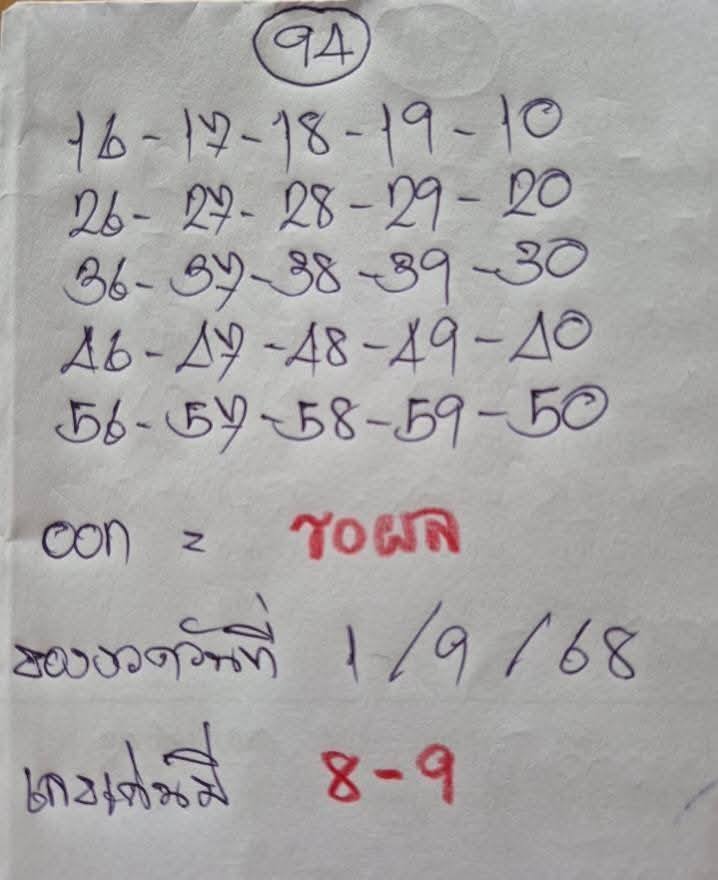 94
16-17-18-19-10
26-27-28-29-20
36-37-38-39-30
46-47-48-49-40
56-57-58-59-50
ออก = รอผล
ของงวดวันที่ 1/9/68
เลขเด่นมี 8-9